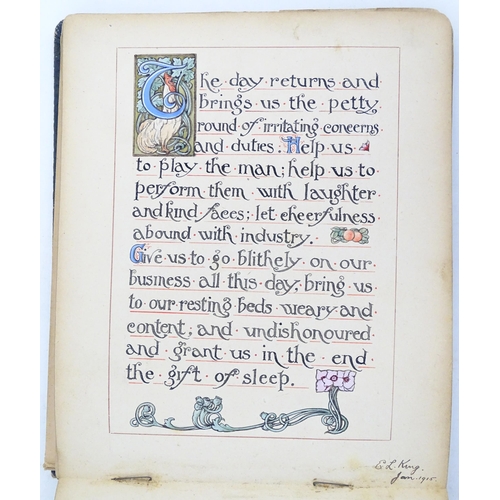 The · day · returns · and ·
brings · us · the · petty
round · of · irritating · concerns
and · duties. Help · us ·
to · play · the · man; help · us · to
perform · them · with · laughter
and · kind · faces; let · cheerfulness
abound · with · industry.
Give · us · to · go · blithely · on · our ·
business · all · this · day; bring · us ·
to · our · resting · beds · weary · and
content; and · undishonoured
and · grant · us · in · the · end
the · gift · of · sleep.
E. L. King.
Jan. 1915